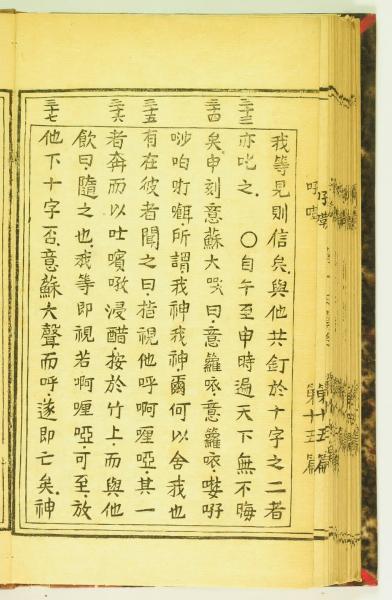 第十五篇
我等見則信矣與他共釘於十字之二者
三十三 亦叱之〇自午至申時過天下無不晦
三十四 矣申刻意蘇大哭曰意蘿意蘿
唦咟叮所謂我神我神爾何以舍我也
三十五 有在彼者聞之曰視他呼啊喱啞其一
三十六 者奔而以吐浸醋按於竹上而與他
飲曰隨之也我等即視若啊喱啞可至放
三十七 他下十字否意蘇大聲而呼遂即亡矣神